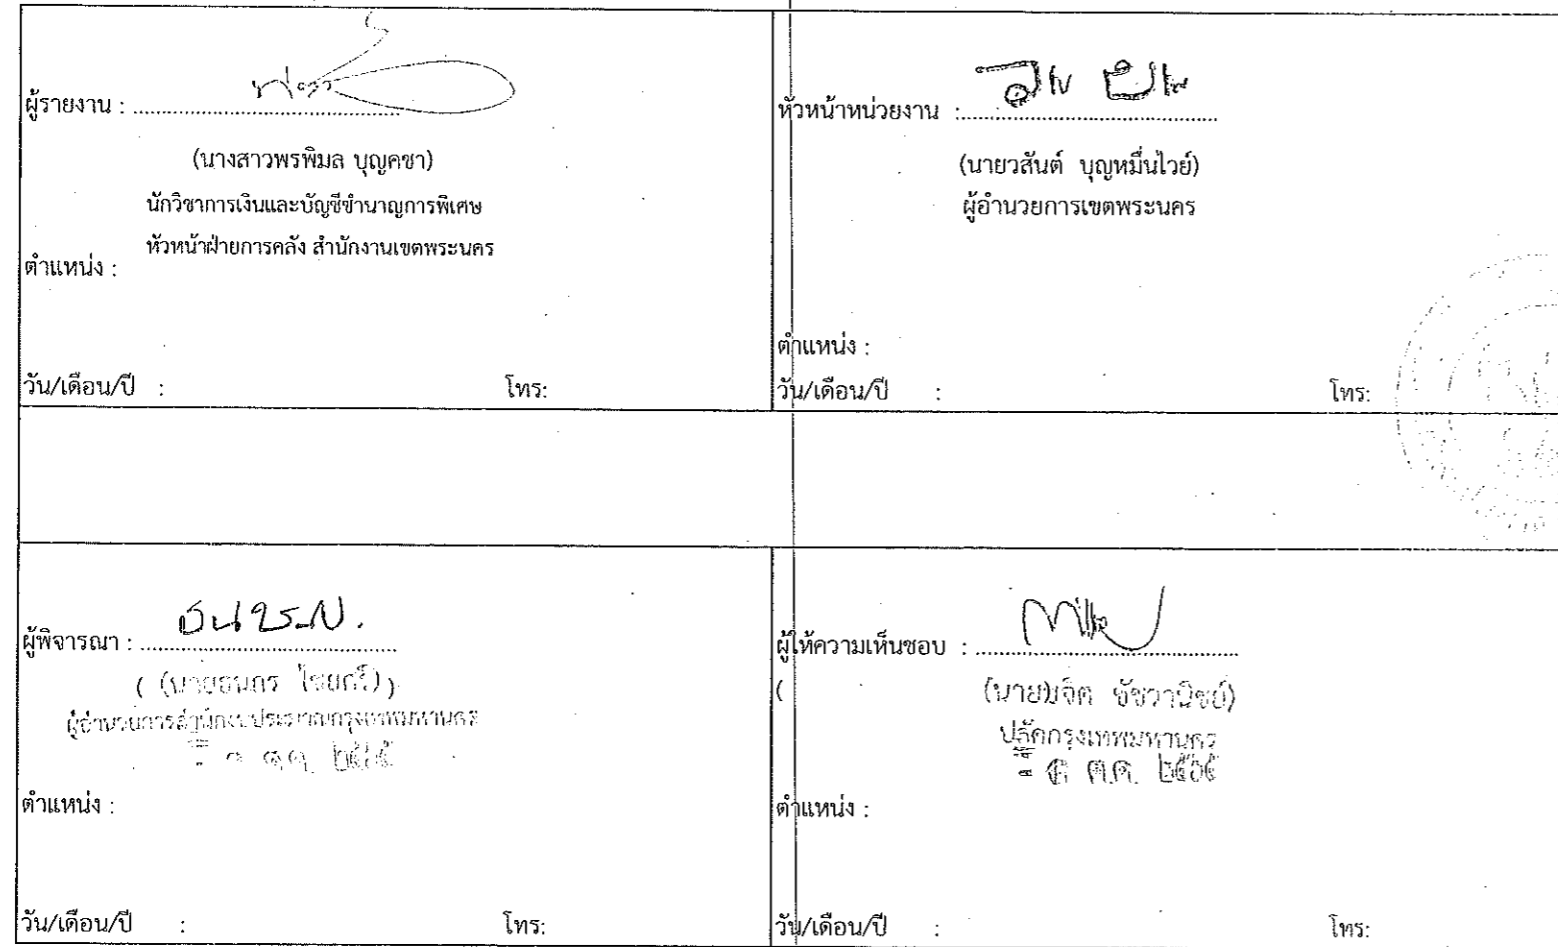 ผู้รายงาน : ........................................
(นางสาวพรพิมล บุญคชา)
นักวิชาการเงินและบัญชีชำนาญการพิเศษ
หัวหน้าฝ่ายการคลัง สำนักงานเขตพระนคร
ตำแหน่ง :
วัน/เดือน/ปี : โทร:
หัวหน้าหน่วยงาน :........................................
(นายวสันต์ บุญหมื่นไวย์)
ผู้อำนวยการเขตพระนคร
ตำแหน่ง :
วัน/เดือน/ปี : โทร:
ผู้พิจารณา : ........................................
( (นายธนกร ไชยศรี) )
ผู้อำนวยการสำนักงบประมาณกรุงเทพมหานคร
ต.ค. ๒๕๖๕
ตำแหน่ง :
วัน/เดือน/ปี : โทร:
ผู้ให้ความเห็นชอบ : ........................................
( (นายขจิต ชัชวานิชย์)
ปลัดกรุงเทพมหานคร
ต.ค. ๒๕๖๕
ตำแหน่ง :
วัน/เดือน/ปี : โทร: